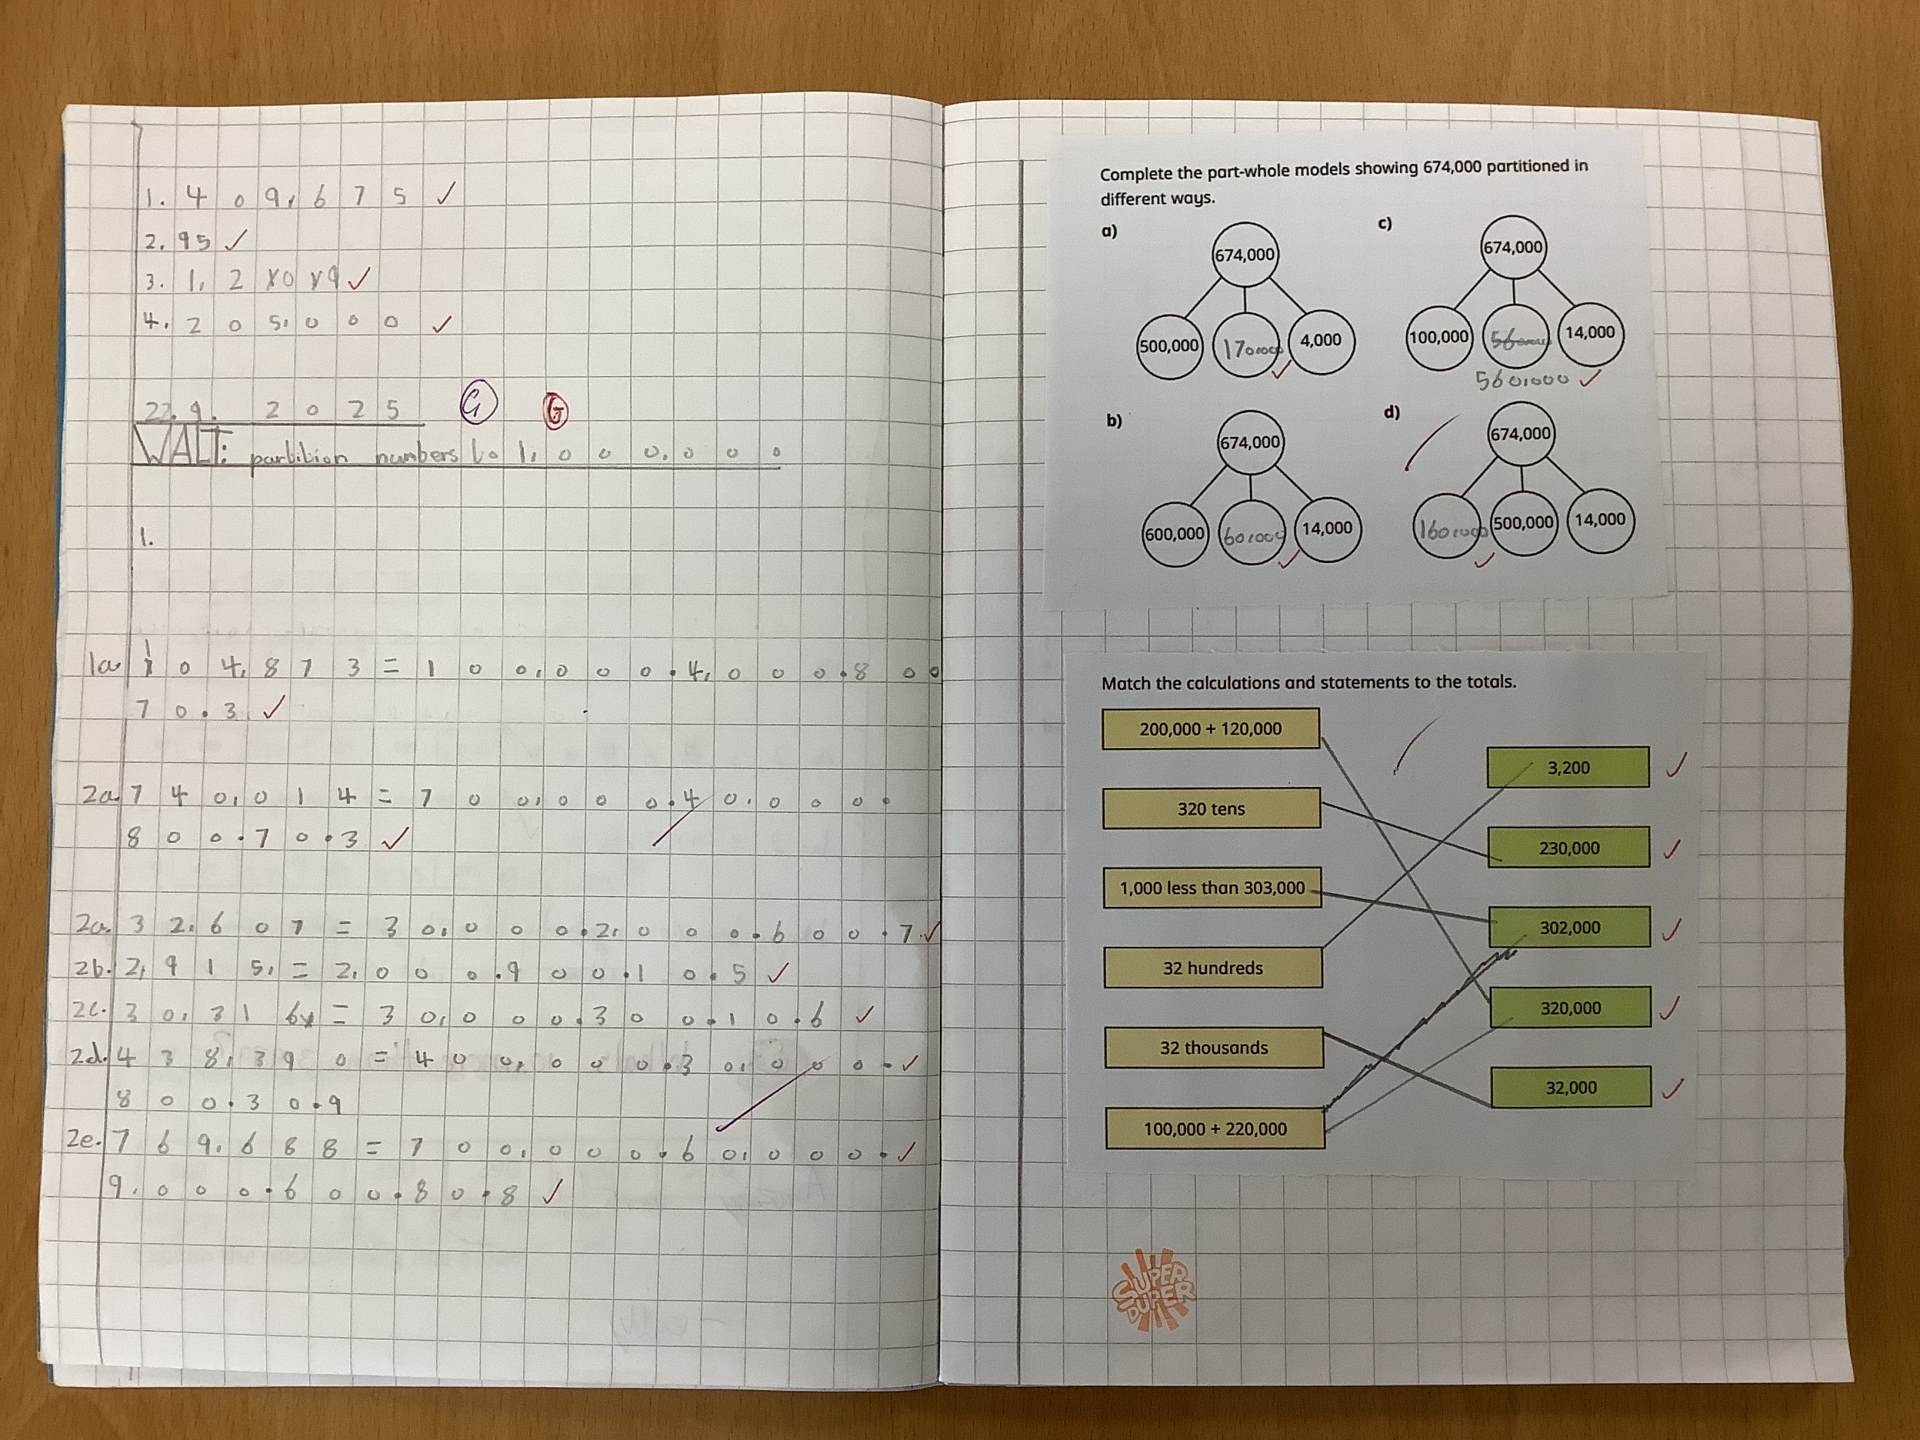 1. 409,675 ✓
2. 95 ✓
4. 205,000 ✓
22.9. 2025 G G
WALT: partition numbers to 1,000,000
1.
1a. 104,873 = 100,000.4,000.800
70.3 ✓
2a. 740,014 = 700,000.40,000.
800.70.3 ✓
2a. 32,607 = 30,000.2,000.600.7 ✓
2b. 2,915, = 2,000.900.10.5 ✓
2c. 30,316 = 30,000.300.10.6 ✓
2d. 438,390 = 400,000.30,000. ✓
800.30.9
2e. 769,688 = 700,000.60,000. ✓
9,000.600.80.8 ✓
Complete the part-whole models showing 674,000 partitioned in
different ways.
a)
674,000
500,000 170,000 4,000 ✓
c)
674,000
100,000 14,000
560,000 ✓
b)
674,000
600,000 60,000 14,000 ✓
d)
674,000
160,000 500,000 14,000 ✓
Match the calculations and statements to the totals.
200,000 + 120,000
320 tens
1,000 less than 303,000
32 hundreds
32 thousands
100,000 + 220,000
3,200 ✓
230,000 ✓
302,000 ✓
320,000 ✓
32,000 ✓
SUPER
DUPER